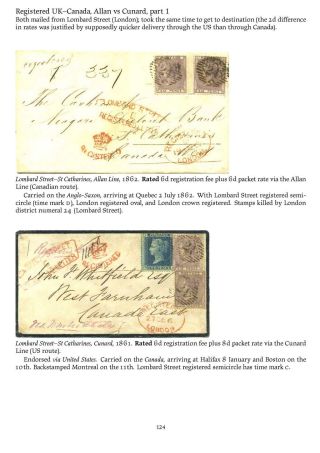 Registered UK–Canada, Allan vs Cunard, part 1
Both mailed from Lombard Street (London); took the same time to get to destination (the 2d difference
in rates was justified by supposedly quicker delivery through the US than through Canada).
The Cashier
Niagara District Bank
St Catharines
Canada West
REGISTERED
LONDON
Lombard Street–St Catharines, Allan Line, 1862. Rated 6d registration fee plus 6d packet rate via the Allan
Line (Canadian route).
Carried on the Anglo-Saxon, arriving at Quebec 2 July 1862. With Lombard Street registered semi-
circle (time mark D), London registered oval, and London crown registered. Stamps killed by London
district numeral 24 (Lombard Street).
John F Whitfield Esq
West Farnham
Canada East
REGISTERED
LONDON
Lombard Street–St Catharines, Cunard, 1861. Rated 6d registration fee plus 8d packet rate via the Cunard
Line (US route).
Endorsed via United States. Carried on the Canada, arriving at Halifax 8 January and Boston on the
10th. Backstamped Montreal on the 11th. Lombard Street registered semicircle has time mark C.
124